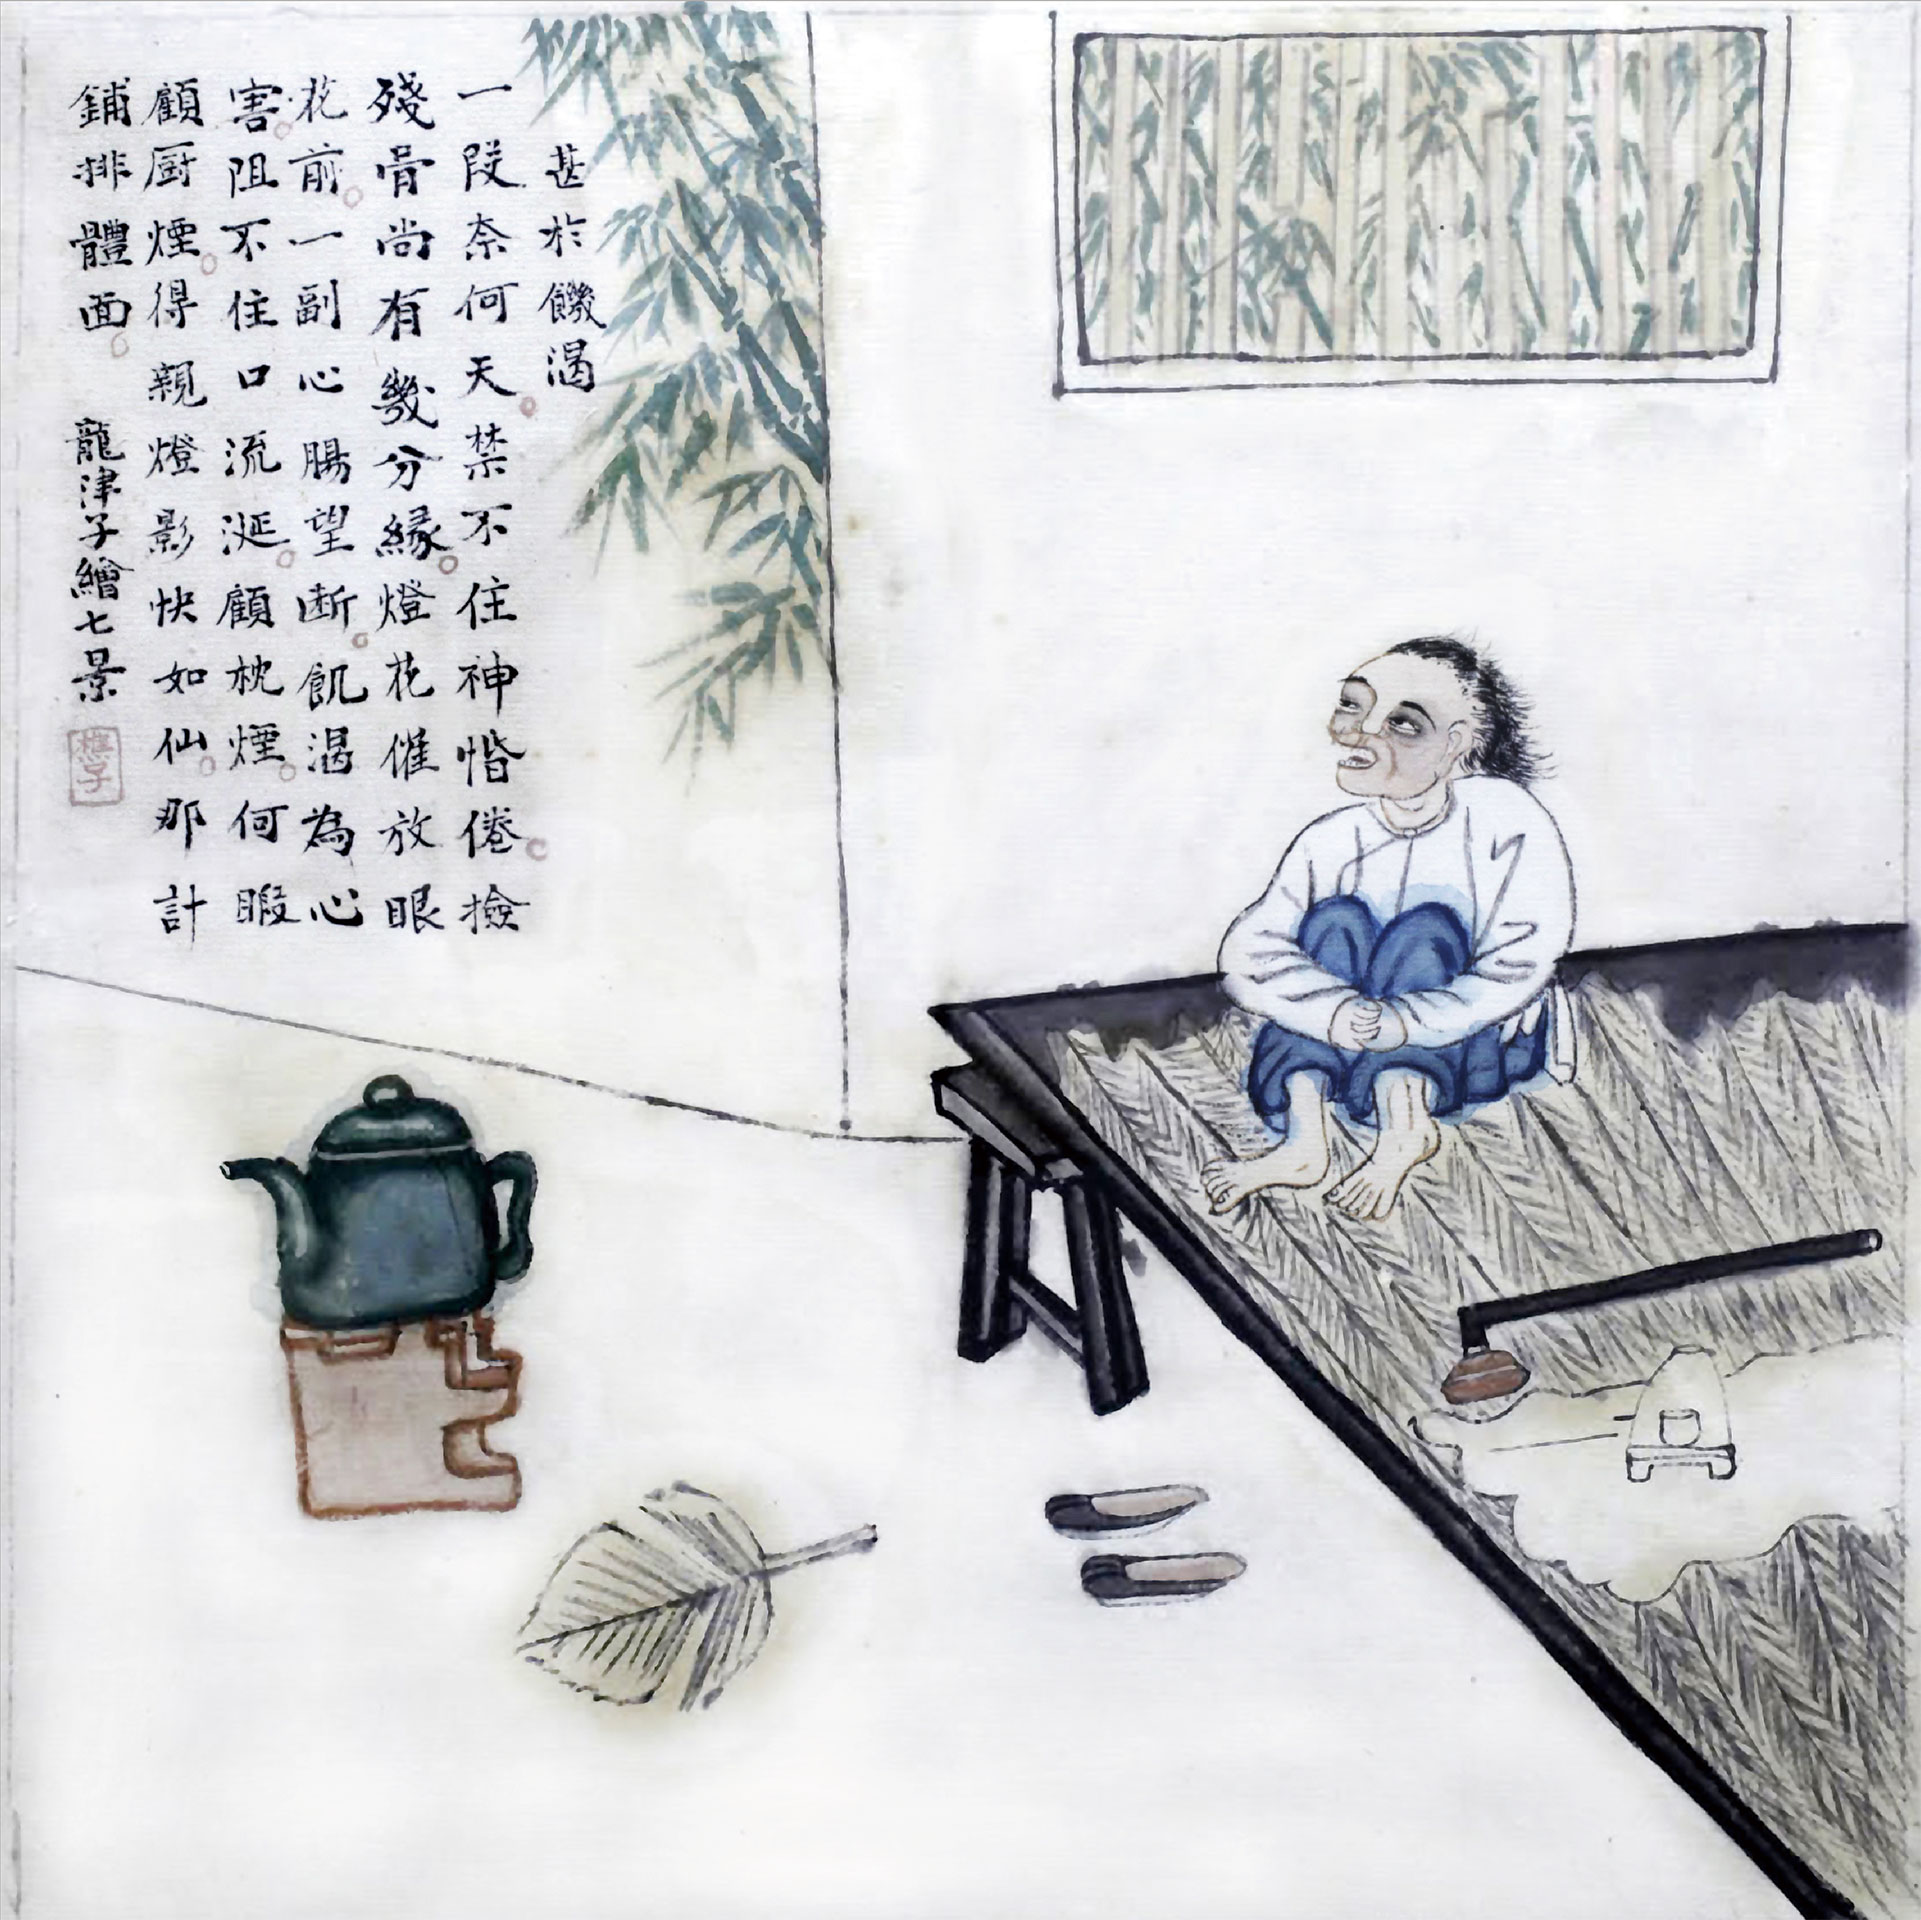 甚於饑渴
一段奈何天禁不住神惛倦撿
殘骨尚有幾分緣燈花催放眼
花前一副心腸望断飢渴為心
害阻不住口流涎顧枕煙何暇
顧厨煙得親燈影快如仙那計
鋪排體面
龍津子繪七景